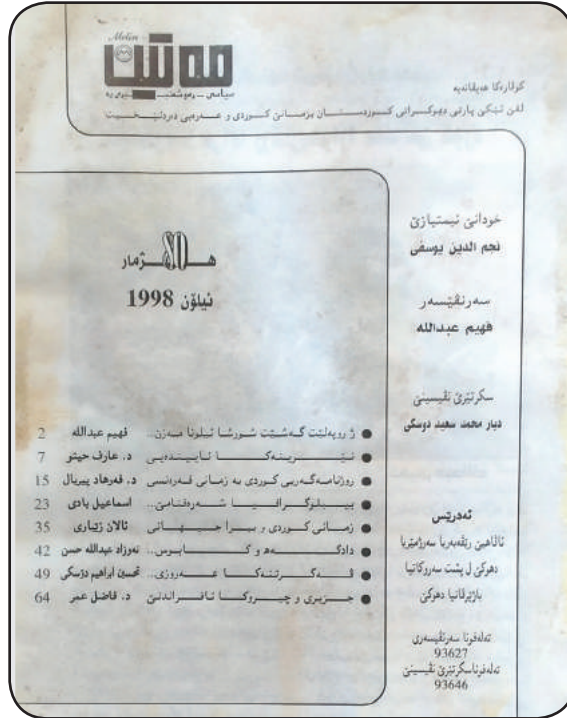 Metin
مەتین
سیاسی ـ رەوشەنبیری یە
کوڤارەکا هەیڤانەیە
لقێ ئێکێ پارتی دیموکراتی کوردستان بزمانێ کوردی و عەرەبی دەردئێخیت
خودانێ ئیمتیازێ
نجم الدین یوسفی
سەرنڤیسەر
فهیم عبدالله
سکرتێرێ نڤیسینێ
دیار محمد سعید دوسکی
ئەدرێس
ئاڤاهیێ رێڤەبەریا سەرژمێریا
دهوکێ ل پشت سەروکاتیا
باژێرڤانیا دهوکێ
تەلەفونا سەرنڤیسەری
93627
تەلەفوناسکرتێرێ نڤیسینێ
93646
هژمار
ئیلۆن 1998
● ژ رویەلێت گەشێت شورشا ئیلونا مەزن.. فهیم عبدالله 2
● د. عارف حیتو 7
● روژنامەگەریی کوردی بە زمانی فەرەنسی د. فەرهاد پیربال 15
● بیبلوگرافیا شەرەفنامێ... اسماعیل بادی 23
● زمانی کوردی و بیرا جیهانی ئالان زێباری 35
● دادگەه و کابوس... نەوزاد عبدالله حسن 42
● ڤەگرتنەکا عەروزی... تحسین ابراهیم دۆسکی 49
● جزیری و چیروکا ئافراندنێ د. فاضل عمر 64